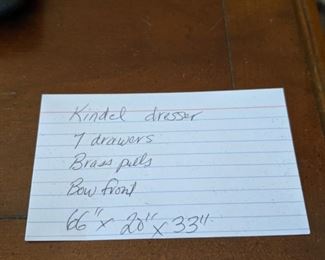 Kindel dresser
7 drawers
Brass pulls
Bow front
66" x 20" x 33"